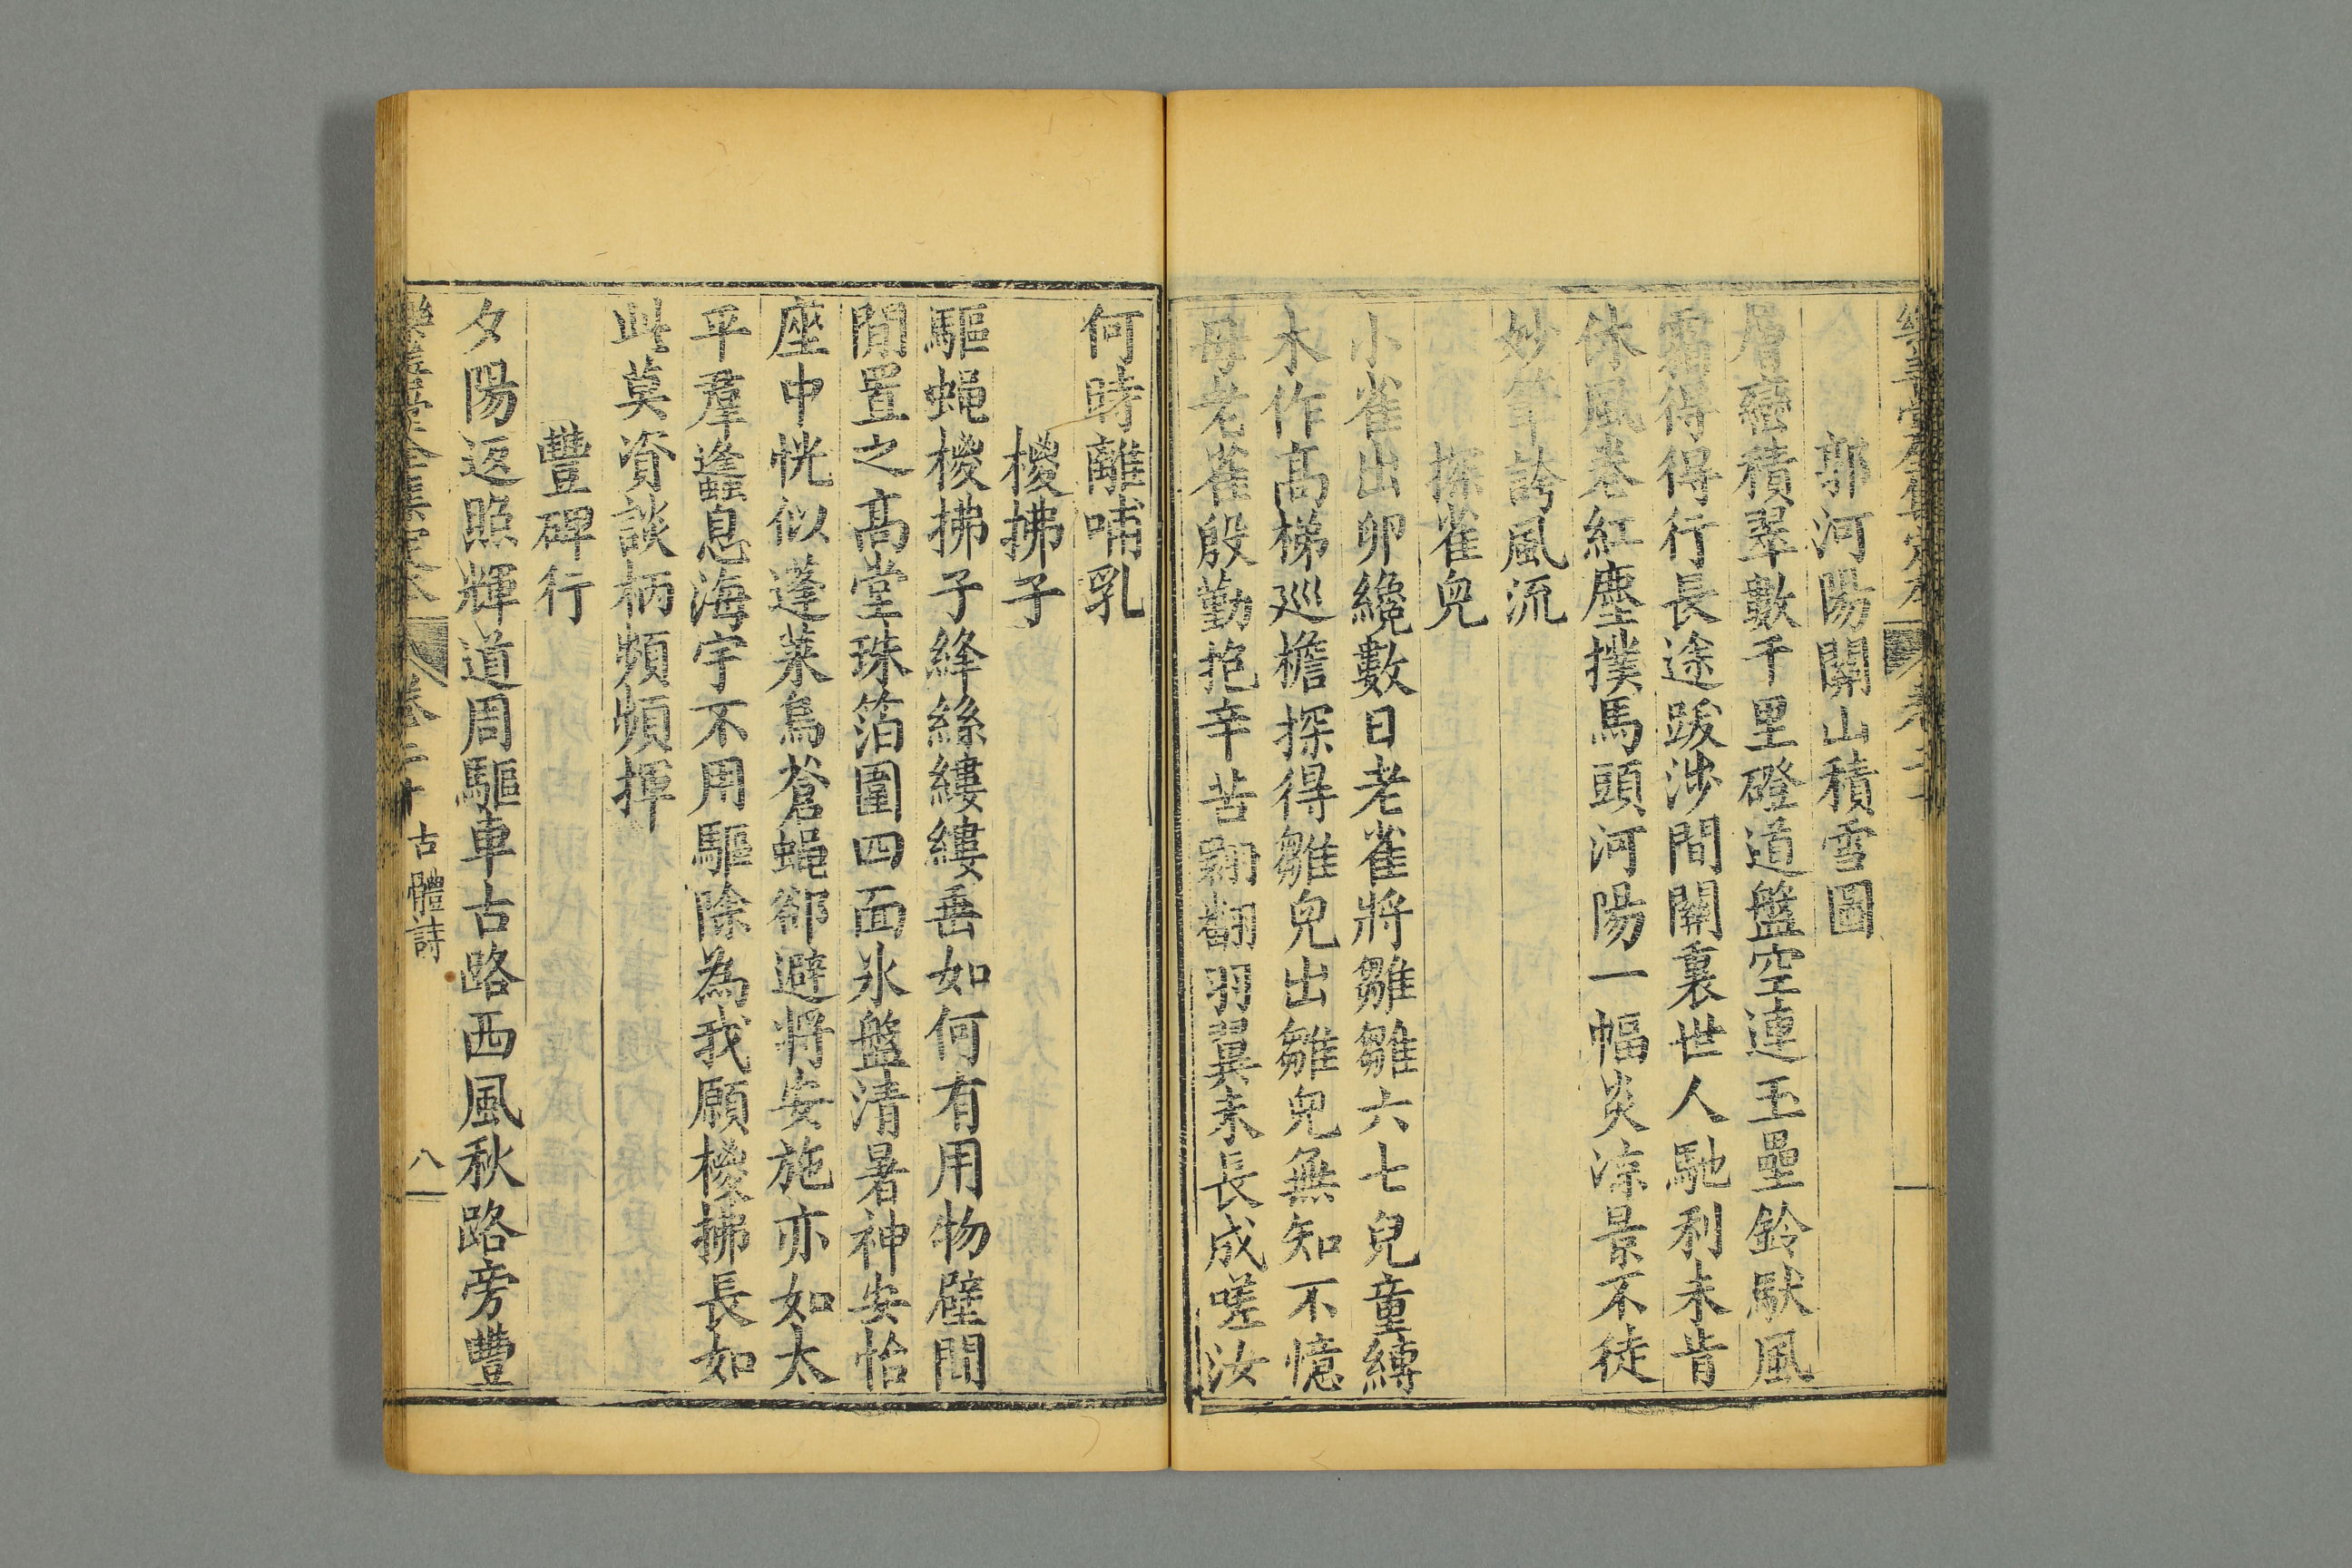 郭河陽關山積雪圖
層巒積翠數千里磴道盤空連玉壘鈴馱風
霜得得行長途跋涉間關裏世人馳利未肯
休風卷紅塵撲馬頭河陽一幅炎涼景不徒
妙筆誇風流
探雀兒
小雀出卵纔數日老雀將雛雛六七兒童縛
木作高梯巡檐探得雛兒出雛兒無知不憶
母老雀殷勤抱辛苦翾翻羽翼未長成嗟汝
何時離哺乳
椶拂子
驅蠅椶拂子絳絲縷縷垂如何有用物壁間
閒置之高堂珠箔圍四面氷盤清暑神安怡
座中恍似蓬萊島蒼蠅郤避將安施亦如太
平羣蠭息海宇不用驅除為我願椶拂長如
此莫資談柄頻頻揮
豐碑行
夕陽返照輝道周驅車古路西風秋路旁豐
樂善堂全集定本 卷二十 古體詩 八